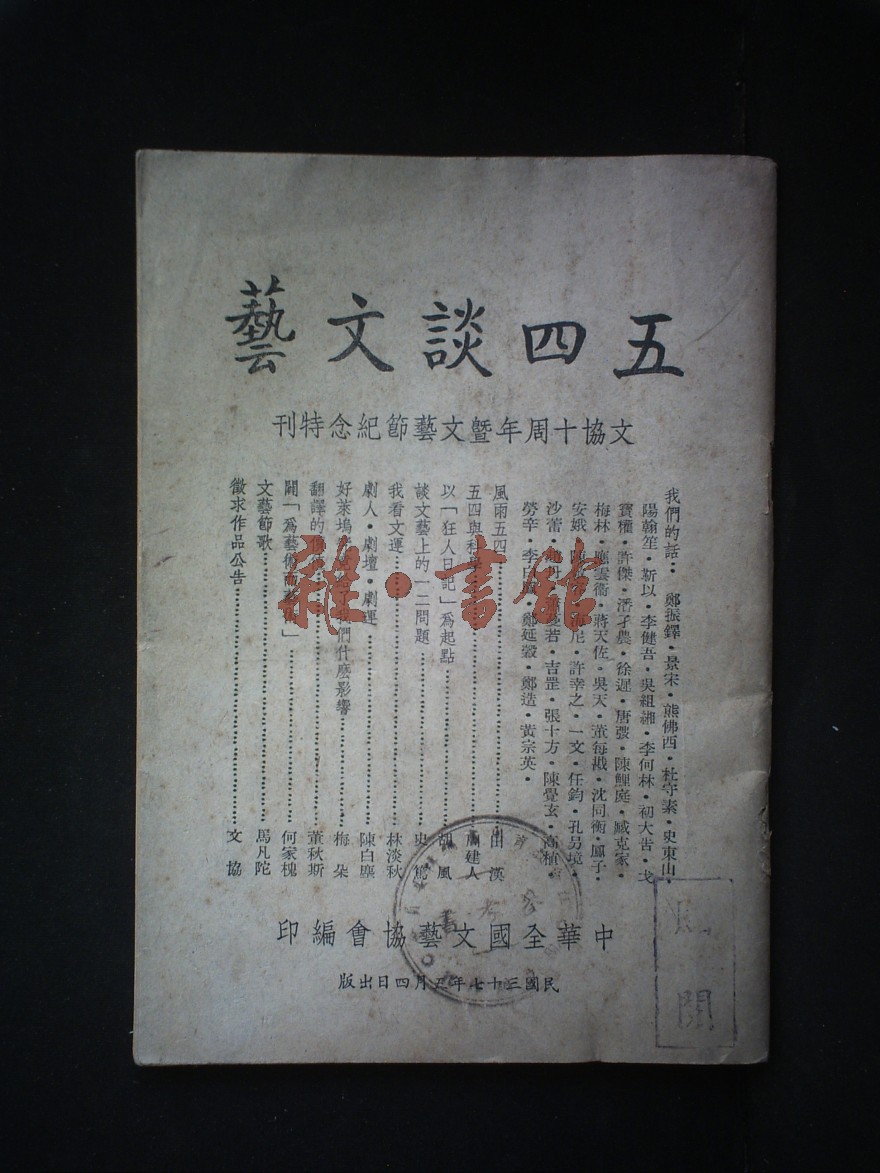 五四談文藝
文協十周年暨文藝節紀念特刊
我們的話：鄭振鐸・景宋・熊佛西・杜守素・史東山・
陽翰笙・靳以・李健吾・吳組緗・李何林・初大告・戈
寶權・許傑・潘孑農・徐遲・唐弢・陳鯉庭・臧克家・
梅林・應雲衞・蔣天佐・吳天・董每戡・沈同衡・鳳子・
安娥・陳 尼・許幸之・一文・任鈞・孔另境・
沙蕾・ 若・吉罡・張十方・陳覺玄・
勞辛・李 ・鄭延穀・鄭造・黃宗英・
風雨五四 田漢
五四與科學 周建人
以「狂人日記」爲起點 胡風
談文藝上的一二問題 史篤
我看文運 林淡秋
劇人・劇壇・劇運 陳白塵
好萊塢 我們什麽影響 梅朵
翻譯的 董秋斯
闢「爲藝術而藝術」 何家槐
文藝節歌 馬凡陀
徵求作品公告 文協
中華全國文藝協會編印
民國三十七年五月四日出版
雜・書館
閱